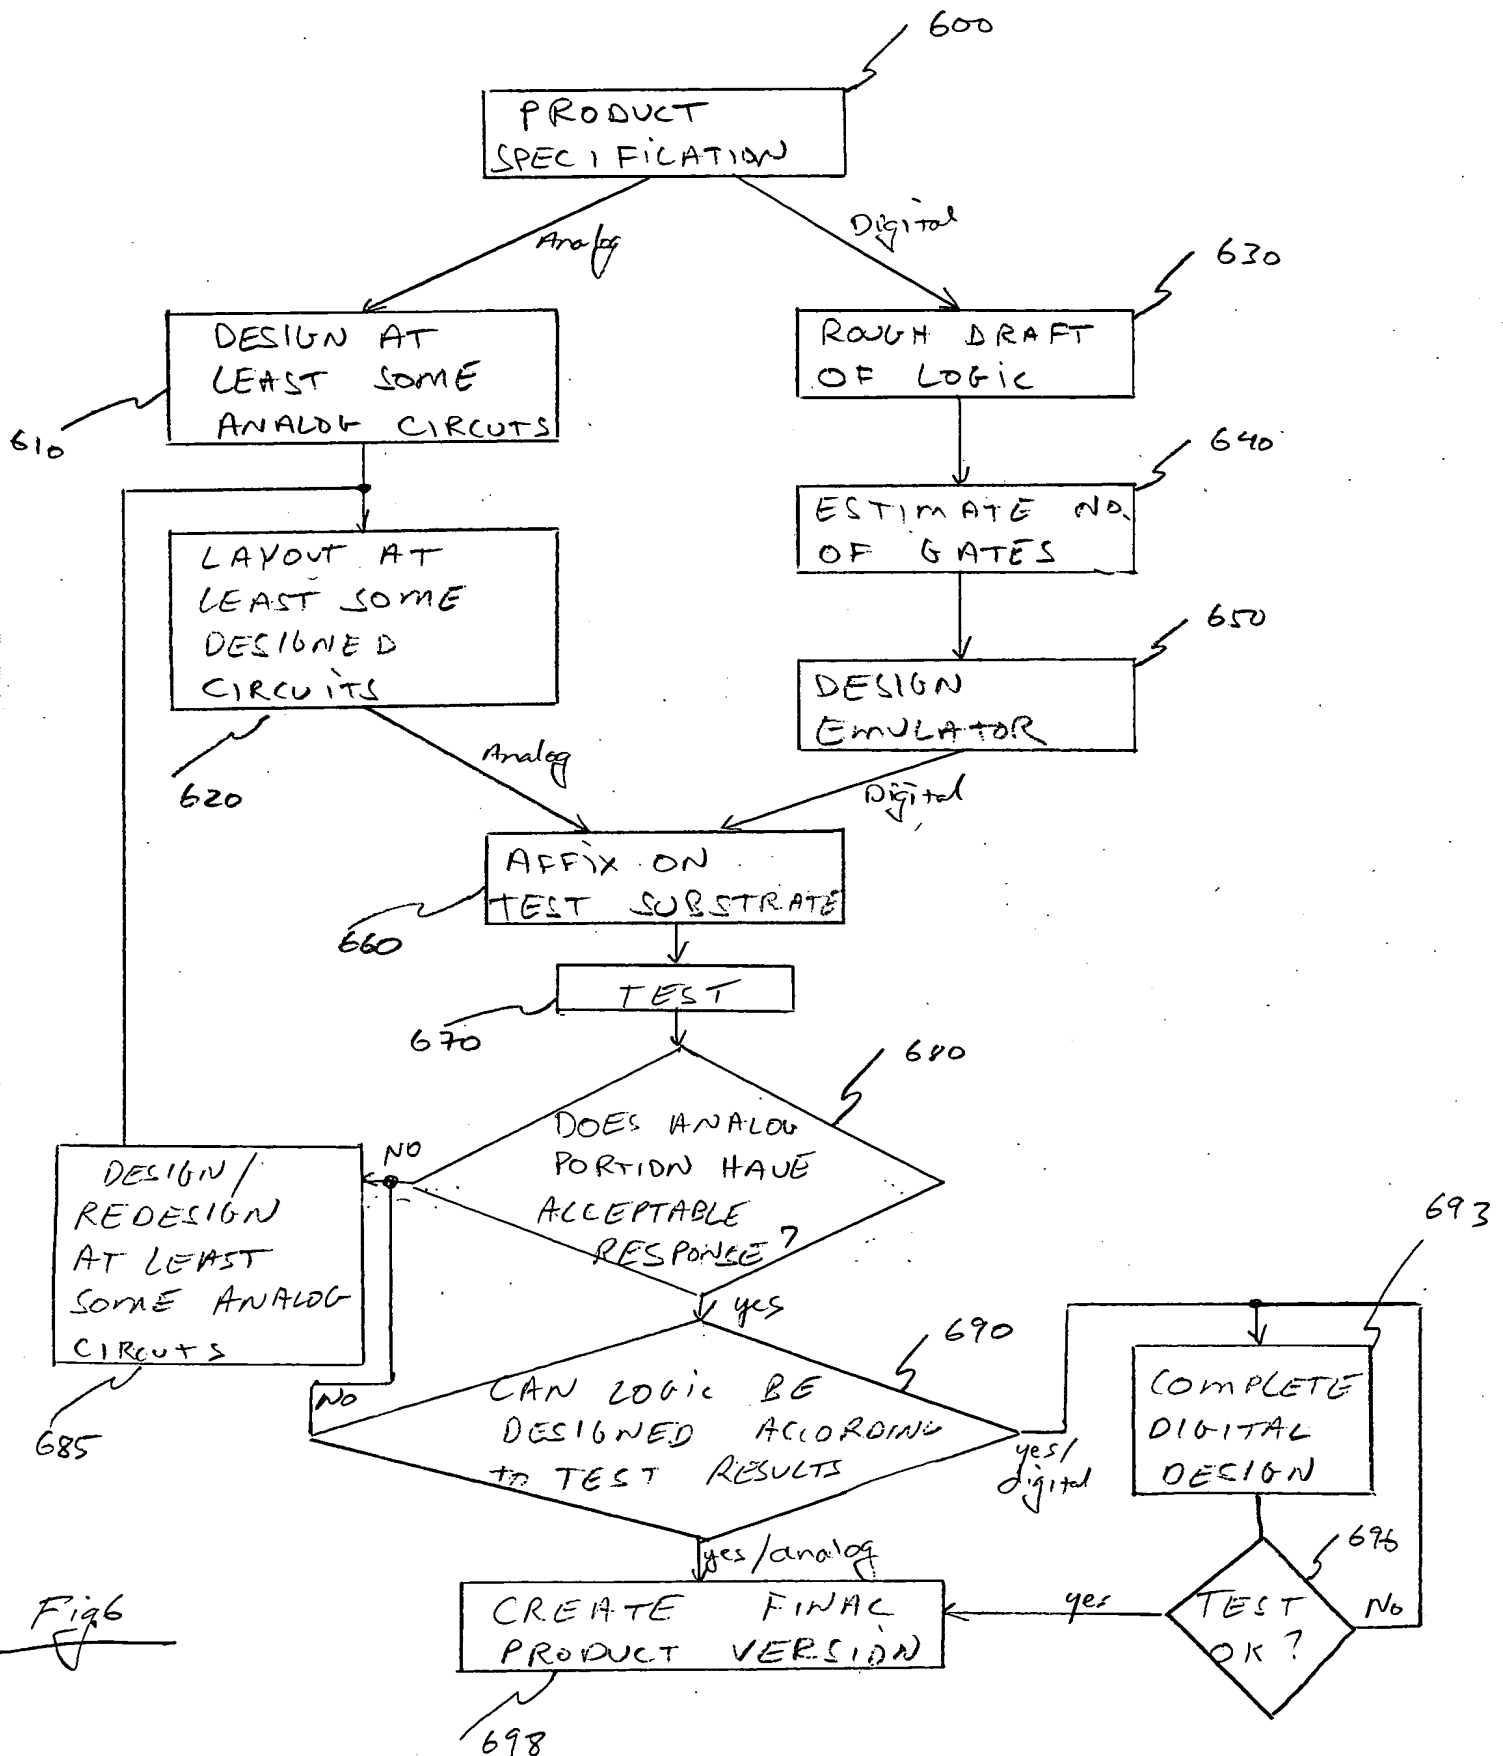 600
PRODUCT
SPECIFICATION
Analog
Digital
630
DESIGN AT
LEAST SOME
ANALOG CIRCUTS
610
ROUGH DRAFT
OF LOGIC
640
ESTIMATE NO.
OF GATES
LAYOUT AT
LEAST SOME
DESIGNED
CIRCUITS
620
650
DESIGN
EMULATOR
Analog
Digital
AFFIX ON
TEST SUBSTRATE
660
TEST
670
680
DOES ANALOG
PORTION HAVE
ACCEPTABLE
RESPONSE?
NO
yes
DESIGN/
REDESIGN
AT LEAST
SOME ANALOG
CIRCUTS
685
NO
690
CAN LOGIC BE
DESIGNED ACCORDING
to TEST RESULTS
yes/
digital
yes/analog
693
COMPLETE
DIGITAL
DESIGN
696
TEST
OK?
yes
NO
CREATE FINAL
PRODUCT VERSION
698
Fig 6